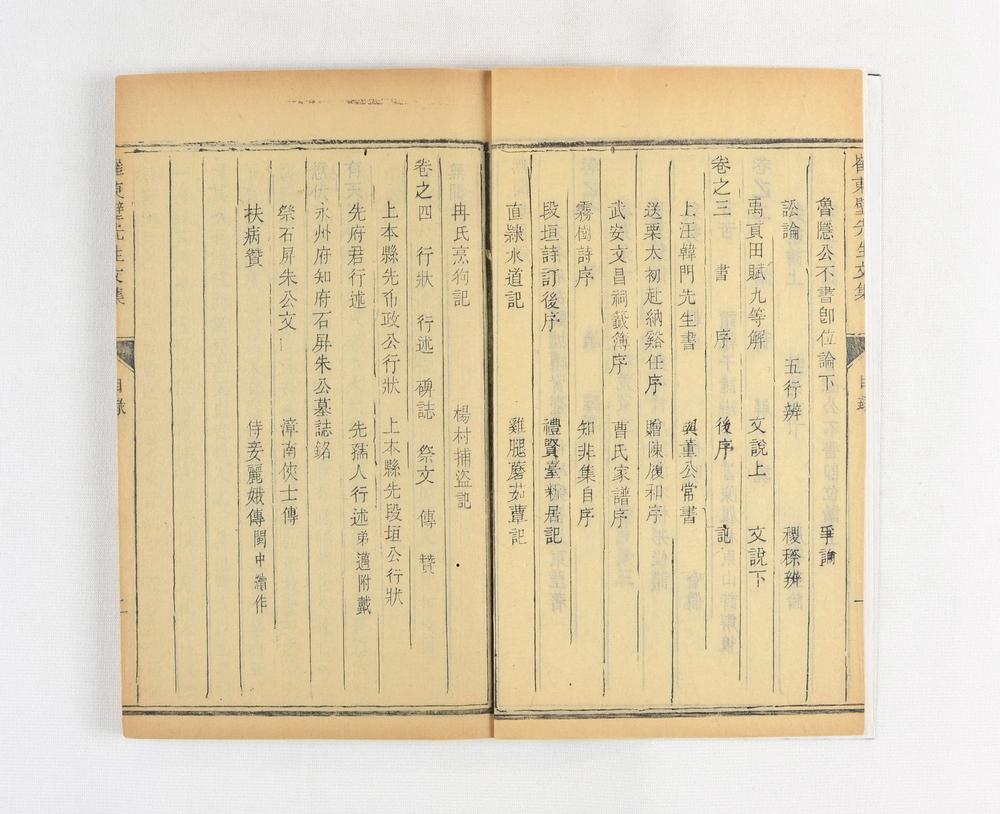 崔東壁先生文集
目錄
一
魯隱公不書卽位論下 爭論
訟論 五行辨 稷穄辨
禹貢田賦九等解 文說上 文說下
卷之三 書 序 後序 記
上汪韓門先生書 與董公常書
送栗太初赴納谿任序 贈陳履和序
武安文昌祠籤簿序 曹氏家譜序
霧樹詩序 知非集自序
段垣詩訂後序 禮賢臺新居記
直隸水道記 雞腿蘑菇蕈記
冉氏烹狗記 楊村捕盜記
卷之四 行狀 行述 碑誌 祭文 傳 贊
上本縣先布政公行狀 上本縣先段垣公行狀
先府君行述 先孺人行述弟邁附載
永州府知府石屏朱公墓誌銘
祭石屏朱公文 漳南俠士傳
扶病贊 侍妾麗娥傳閩中繪作
崔東壁先生文集
目錄